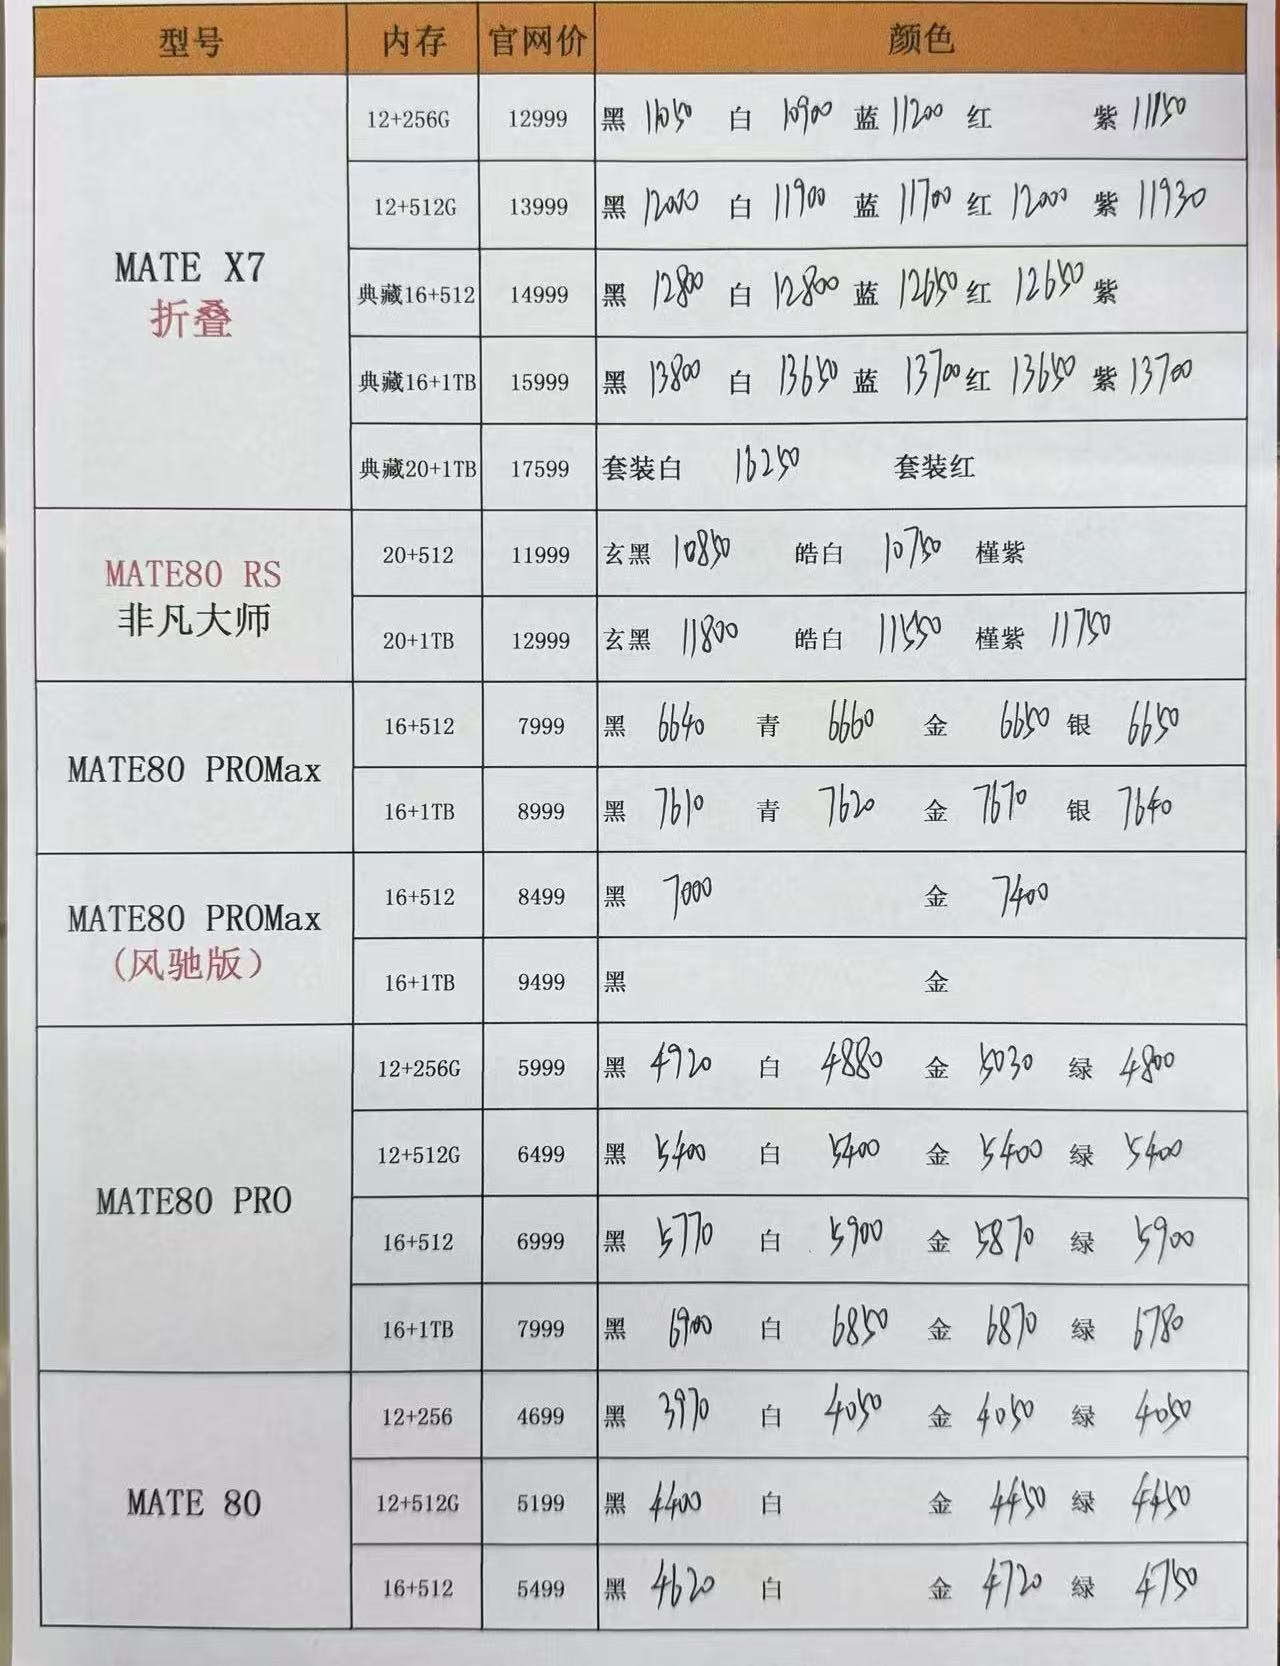 型号 内存 官网价 颜色
MATE X7
折叠
12+256G 12999 黑 11050 白 10900 蓝 11200 红 紫 11150
12+512G 13999 黑 12000 白 11900 蓝 11700 红 12000 紫 11930
典藏16+512 14999 黑 12800 白 12800 蓝 12650 红 12650 紫
典藏16+1TB 15999 黑 13800 白 13650 蓝 13700 红 13650 紫 13700
典藏20+1TB 17599 套装白 16250 套装红
MATE80 RS
非凡大师
20+512 11999 玄黑 10850 皓白 10750 槿紫
20+1TB 12999 玄黑 11800 皓白 11550 槿紫 11750
MATE80 PROMax
16+512 7999 黑 6640 青 6660 金 6650 银 6650
16+1TB 8999 黑 7610 青 7620 金 7670 银 7640
MATE80 PROMax
(风驰版)
16+512 8499 黑 7000 金 7400
16+1TB 9499 黑 金
MATE80 PRO
12+256G 5999 黑 4920 白 4880 金 5030 绿 4800
12+512G 6499 黑 5400 白 5400 金 5400 绿 5400
16+512 6999 黑 5770 白 5900 金 5870 绿 5900
16+1TB 7999 黑 6900 白 6850 金 6870 绿 6780
MATE 80
12+256 4699 黑 3970 白 4050 金 4050 绿 4050
12+512G 5199 黑 4400 白 金 4450 绿 4450
16+512 5499 黑 4620 白 金 4720 绿 4750